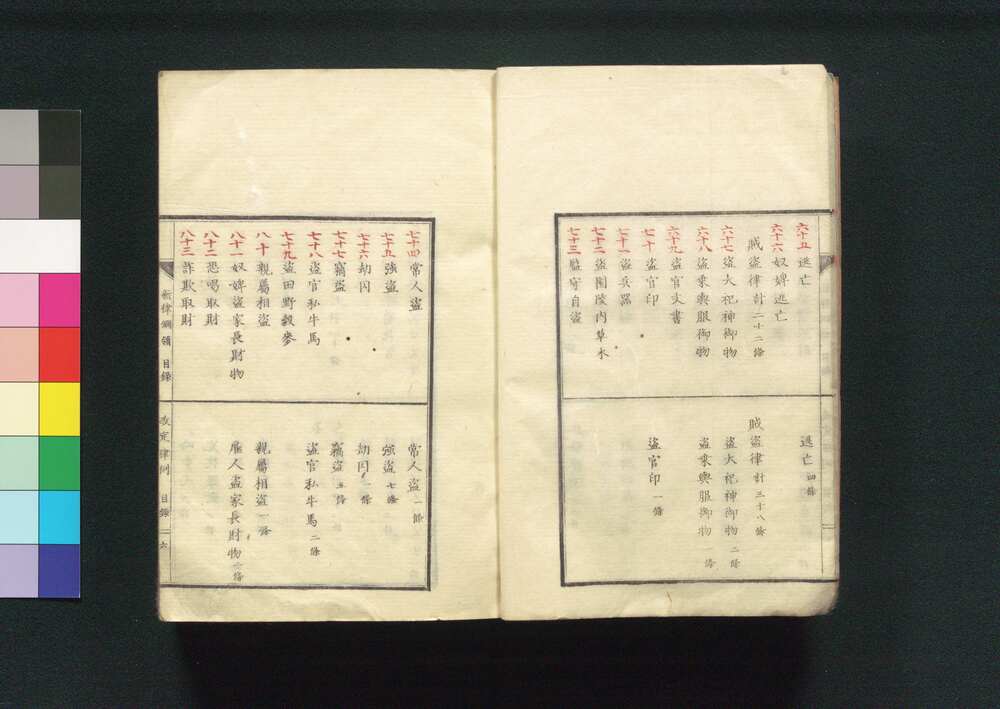 六十五 逃亡
六十六 奴婢逃亡
賊盜律計二十二條
六十七 盜大祀神御物
六十八 盜乘輿服御物
六十九 盜官文書
七十 盜官印
七十一 盜兵器
七十二 盜園陵内草木
七十三 監守自盜
逃亡 四條
賊盜律計三十八條
盜大祀神御物 二條
盜乘輿服御物 一條
盜官印 一條
七十四 常人盜
七十五 強盜
七十六 劫囚
七十七 竊盜
七十八 盜官私牛馬
七十九 盜田野穀麥
八十 親屬相盜
八十一 奴婢盜家長財物
八十二 恐喝取財
八十三 詐欺取財
常人盜 一條
強盜 七條
劫囚 一條
竊盜 五條
盜官私牛馬 二條
親屬相盜 一條
雇人盜家長財物
新律綱領 目錄
改定律例 目錄 六